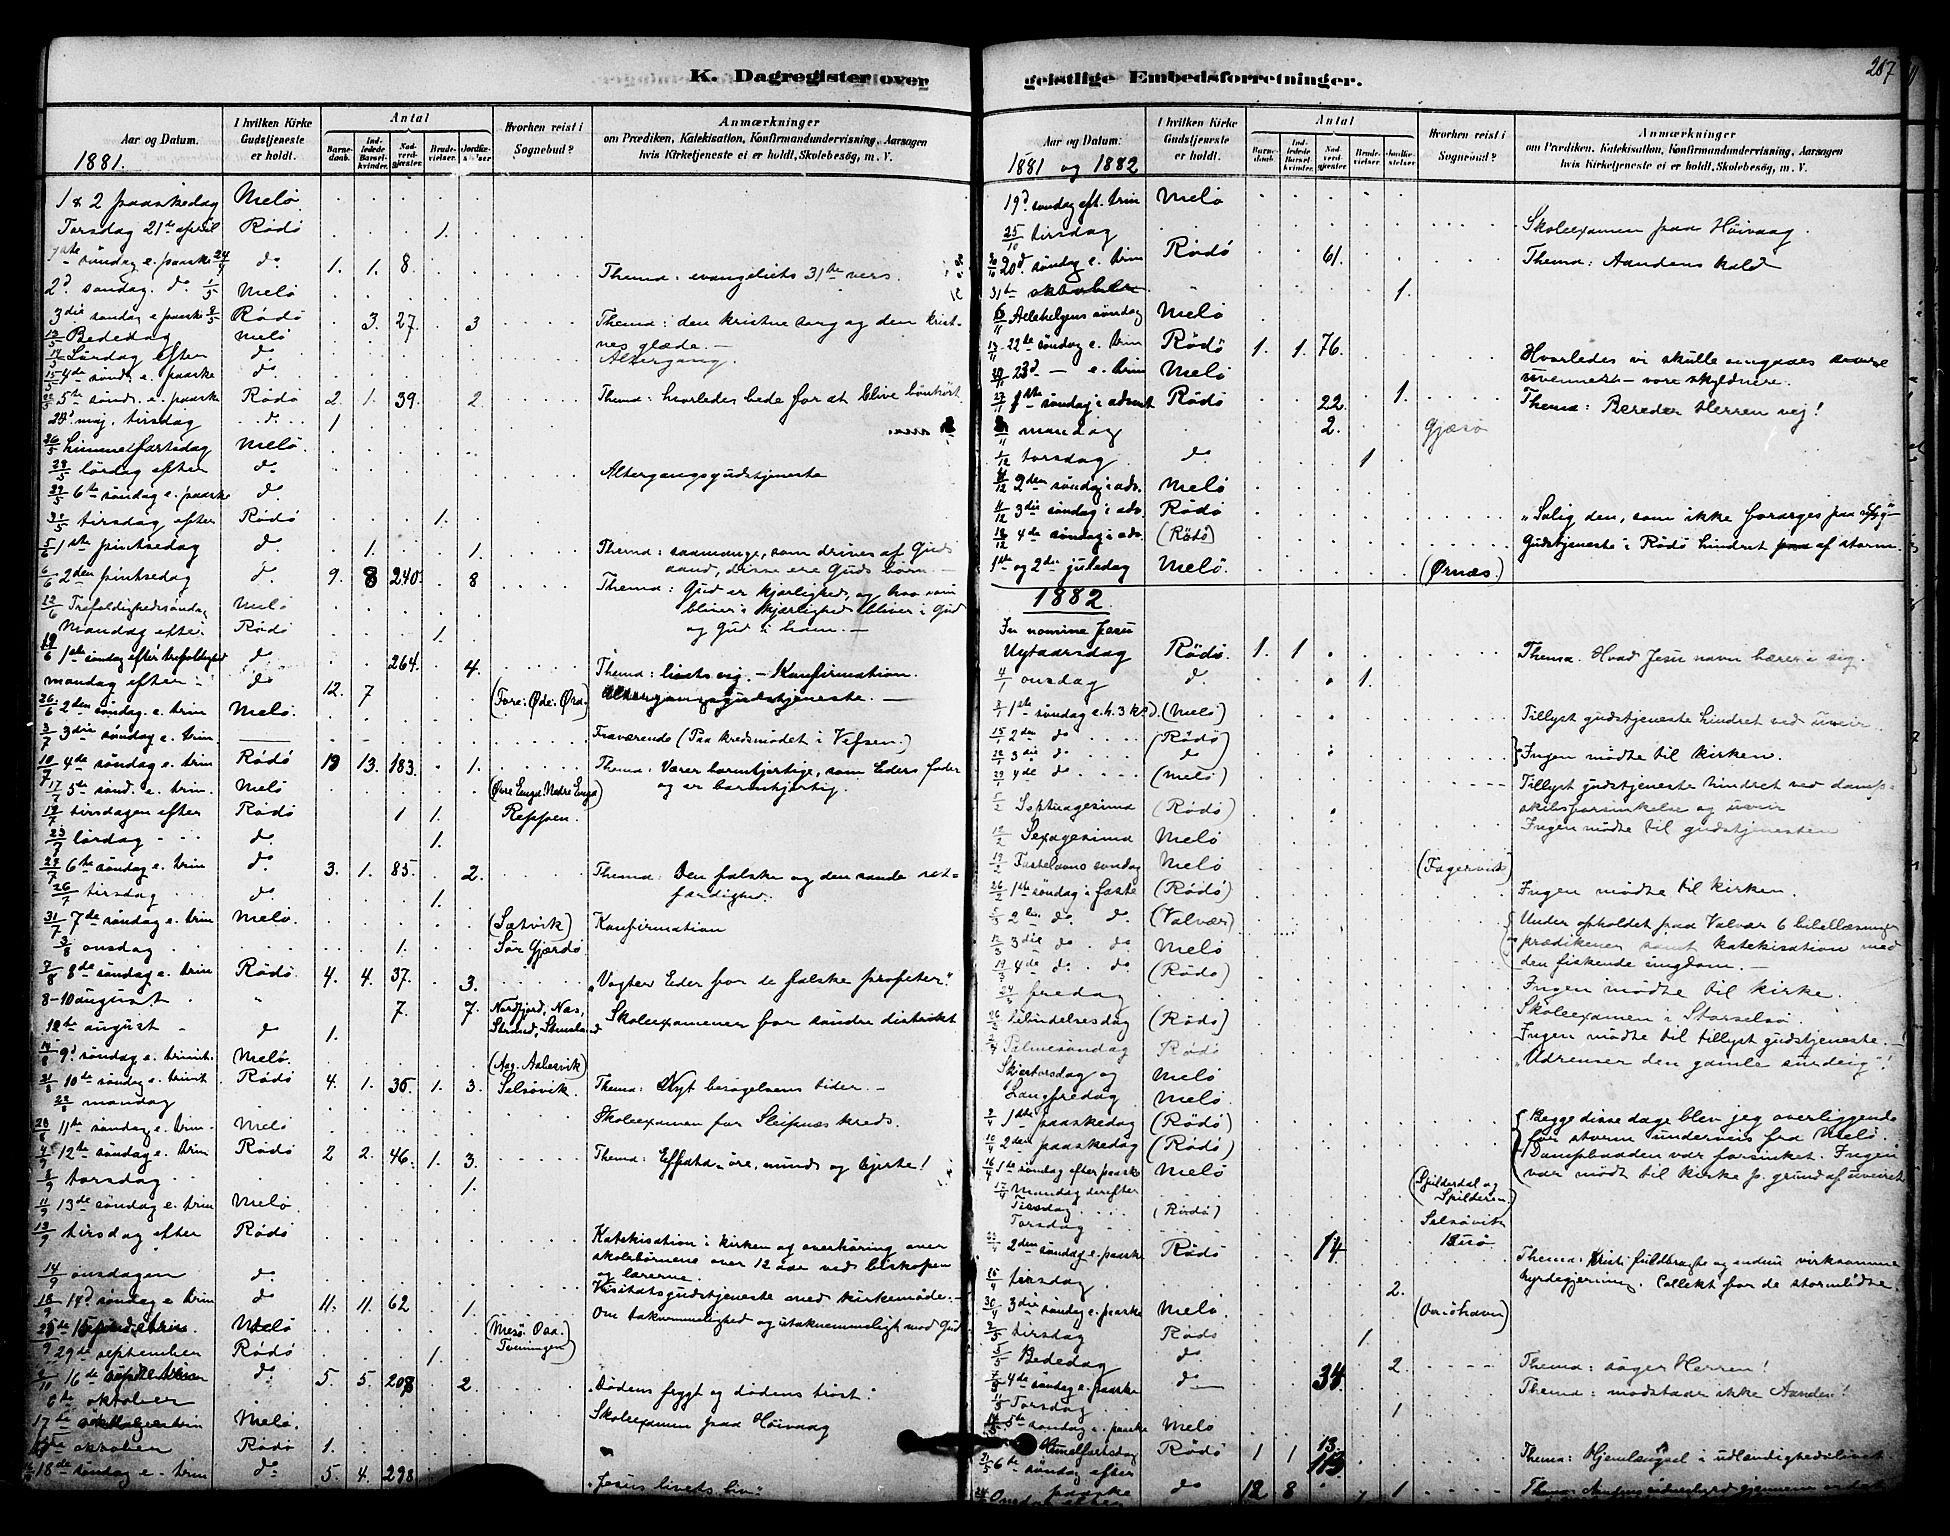 K. Dagregister over
geistlige Embedsforretninger.
207
Aar og Datum.
1881.
I hvilken Kirke Gudstjeneste er holdt.
Antal
Barnedaab.
Indledede Barselkvinder.
Nadverdgjester.
Brudevielser.
Jordfæstelser
Hvorhen reist i Sognebud?
Anmærkninger
om Prædiken, Katekisation, Konfirmandundervisning, Aarsagen
hvis Kirketjeneste ei er holdt, Skolebesøg, m. V.
1 & 2 paaskedag Melö.
Torsdag 21de april Rödö 1.
1ste söndag e. paaske 24/4 do 1. 1. 8. Thema: evangeliets 31te vers.
2d. söndag. do. 1/5 Melö
3die söndag e. paaske 8/5 Rödö 3. 27. 3 Thema: den kristne sorg og den krist-
nes glæde.—
Bededag Melö
Lördag efter do. Altergang.
15/5 4de sönd. e. paaske do.
22/5 5te sönd. e. paaske Rödö 2 1. 39. 2. Thema: hvorledes bede for at blive bönhört
maj. tirsdag do. 1
26/5 himmelfartsdag Melö.
28/5 lördag efter do Altergangsgudstjeneste
29/5 6te söndag e. paaske do.
tirsdag efter Rödö 1.
5/6 1ste pintsedag do. 1. 1. Thema: saamange, som drives af Guds
aand, disse ere Guds börn.—
6/6 2den pintsedag do. 9. 8 240. 8 Thema: Gud er kjærlighed, og hvo som
bliver i kjærlighed bliver i Gud
og Gud i ham.—
12/6 Trefoldighedssöndag Melö
Mandag efter. Rödö 1.
19/6 1ste söndag efter trefoldighed do 264. 4. Thema: — Konfirmation.—
mandag efter do 12. 7 (Fore: Øde: Øra.) Altergangsgudstjeneste.—
26/6 2den söndag e. trin Melö.
3/7 3die söndag e. trin. Fraværende (Paa kredsmödet i Vefsen.)
10/7 4de söndag e. trin Rödö 13 13. 183. 1. Thema: Værer barmhjertige, som Eders fader
og er barmhjertig.
17/7 5te sönd. e. trin. Melö (Övre Enge. Nedre Enge)
19/7 tirsdagen efter Rödö 1 1. Reppen.
23/7 lördag do. 1.
6te söndag e. trin do. 3. 1. 85. 2. Thema: Den falske og den sande ret-
færdighed.
26/7 tirsdag do. 1.
31/7 7de söndag e. trin Melö. (Sætvik) Konfirmation
3/8 onsdag 1. Sör Gjerdö
7/8 8de söndag e. trin Rödö. 4. 4. 37. 3. „Vogter Eder for de falske profeter.“
8-10 august „ 7. 7. Nordfjord, Næs, Skoleexamener for söndre distrikt
12te august do 1.
14/8 9d. söndag e. trinit. Melö. (Aag. Aalesvik)
21/8 10de söndag e. trinit. Rödö 4. 1. 36. 1. 3. Selsövik. Thema: Nyt besögelsens tider.—
22/8 mandag Skoleexamen for Sleipnæs kreds.
28/8 11te söndag e. trin. Melö
4/9 12te söndag e. trin Rödö 2 2. 46. 1. 3. Thema: Effata - öre, mund og hjerte!
8/9 torsdag 1.
11/9 13de söndag e. trin Melö.
13/9 tirsdag efter Rödö Katekisation i kirken og overhöring over
skolebörnene over 12 aar ved biskopen
og lærerne.
14/9 onsdagen do. Visitatsgudstjeneste med kirkemöde.—
18/9 14d söndag e. trin do 11. 11. 62 1. Om taknemmelighed og utaknemmeligh mod Gud
Melö (Mesö. Oaa. Tveningen)
29de september Rödö 1.
2/10 16de do. 5. 5. 208 2. „Dödens frygt og dödens tröst.“
6te oktober Skoleexamen paa Höivaag
17te Melö.
oktober Rödö 1.
18de söndag e. trin do. 5. 4. 298 „Jesus livets liv.“
Aar og Datum:
1881 og 1882
I hvilken Kirke Gudstjeneste er holdt.
Antal
Barnedaab.
Indledede Barselkvinder.
Nadverdgjester.
Brudevielser.
Jordfæstelser.
Hvorhen reist i Sognebud?
Anmærkninger
om Prædiken, Katekisation, Konfirmandundervisning, Aarsagen
hvis Kirketjeneste ei er holdt, Skolebesøg, m. V.
19d söndag eft. trin Melö
25/10 tirsdag Skoleexamen paa Höivaag.
20d söndag e. trin Rödö 61. Thema: Aandens kald
31te oktober „ 1.
6/11 Allehelgens söndag Melö
13/11 22de söndag e. trin Rödö 1. 1. 76. Hvorledes vi skulle
— vore skyldnere.
23d — e. trin Melö
27/11 1ste söndag i advent Rödö 22. 1. Thema: Bereder Herren vej!
mandag 2. Gjæsö
1/12 torsdag do 1
4/12 2den söndag i adv. Melö
11/12 3die söndag i adv. Rödö „Salig den, som ikke forarges paa
18/12 4de söndag i adv. (Rödö) Gudstjeneste i Rödö hindret af storm.
1ste og 2den juledag Melö. (Ørnæs.)
1882.
In nomine Jesu
Nytaarsdag Rödö. 1. 1 Thema: Hvad Jesu navn bærer i sig.
4/1 onsdag do 1.
1ste söndag e. h. 3 k. d. (Melö) Tillyst gudstjeneste hindret ved uveir
15/1 2den do (Rödö)
22/1 3die do do } Ingen mödte til kirken.
29/1 4de do (Melö) Tillyst gudstjeneste hindret ved damp-
skibsforsinkelse og uveir
5/2 Septuagesima (Rödö) Ingen mödte til gudstjenesten
12/2 Sexagesima Melö
19/2 Fastelavns söndag Melö (Fagervik)
26/2 1ste söndag i faste (Rödö) Ingen mödte til kirken.
5/3 2den do. do. (Valvær) Under opholdet paa Valvær 6 bibellæsninger
12/3 3die do. do Melö prædikener samt katekisation med
19/3 4de do. do (Rödö) den fiskende ungdom.—
Ingen mödte til kirke.
24/3 fredag Skoleexamen i Storselsö.
26/3 Bebudelsesdag (Rödö) Ingen mödte til tillyst gudstjeneste.—
2/4 Palmesöndag Rödö „Udrenser den gamle surdeig“!
Skjærtorsdag og Melö
Langfredag Melö.
9/4 1ste paaskedag (Rödö) Begge disse dage blev jeg overliggende
10/4 2den paaskedag (Rödö) for storm underveis fra Melö.
16/4 1ste söndag efter paaske Melö Dampbaaden var forsinket. Ingen
var mödt til kirke p. grund af uveiret
Mandag derefter (Spilderdal og
Tirsdag (Rödö)
Torsdag Selsövik
23/4 2den söndag e. paaske Rödö 14. Thema: Kristi fuldbragte og endnu virksomme
hyrdegjerning. Collekt for de stormlidte.
tirsdag 2.
30/4 3die söndag e. paaske Melö.
2/5 tirsdag Rödö 1
5/5 Bededag do. 2. Thema: söger Herren!
7/5 4de söndag e. paaske do 34. Thema: modstaar ikke Aanden!
11/5 Torsdag 1
14/5 5te söndag e. paaske Melö
Himelfartsdag Rödö 1 1 13.
21/5 6te söndag efter paaske do 12 8 113. 1 Thema: Hjemlængsel i udlændighedslivet